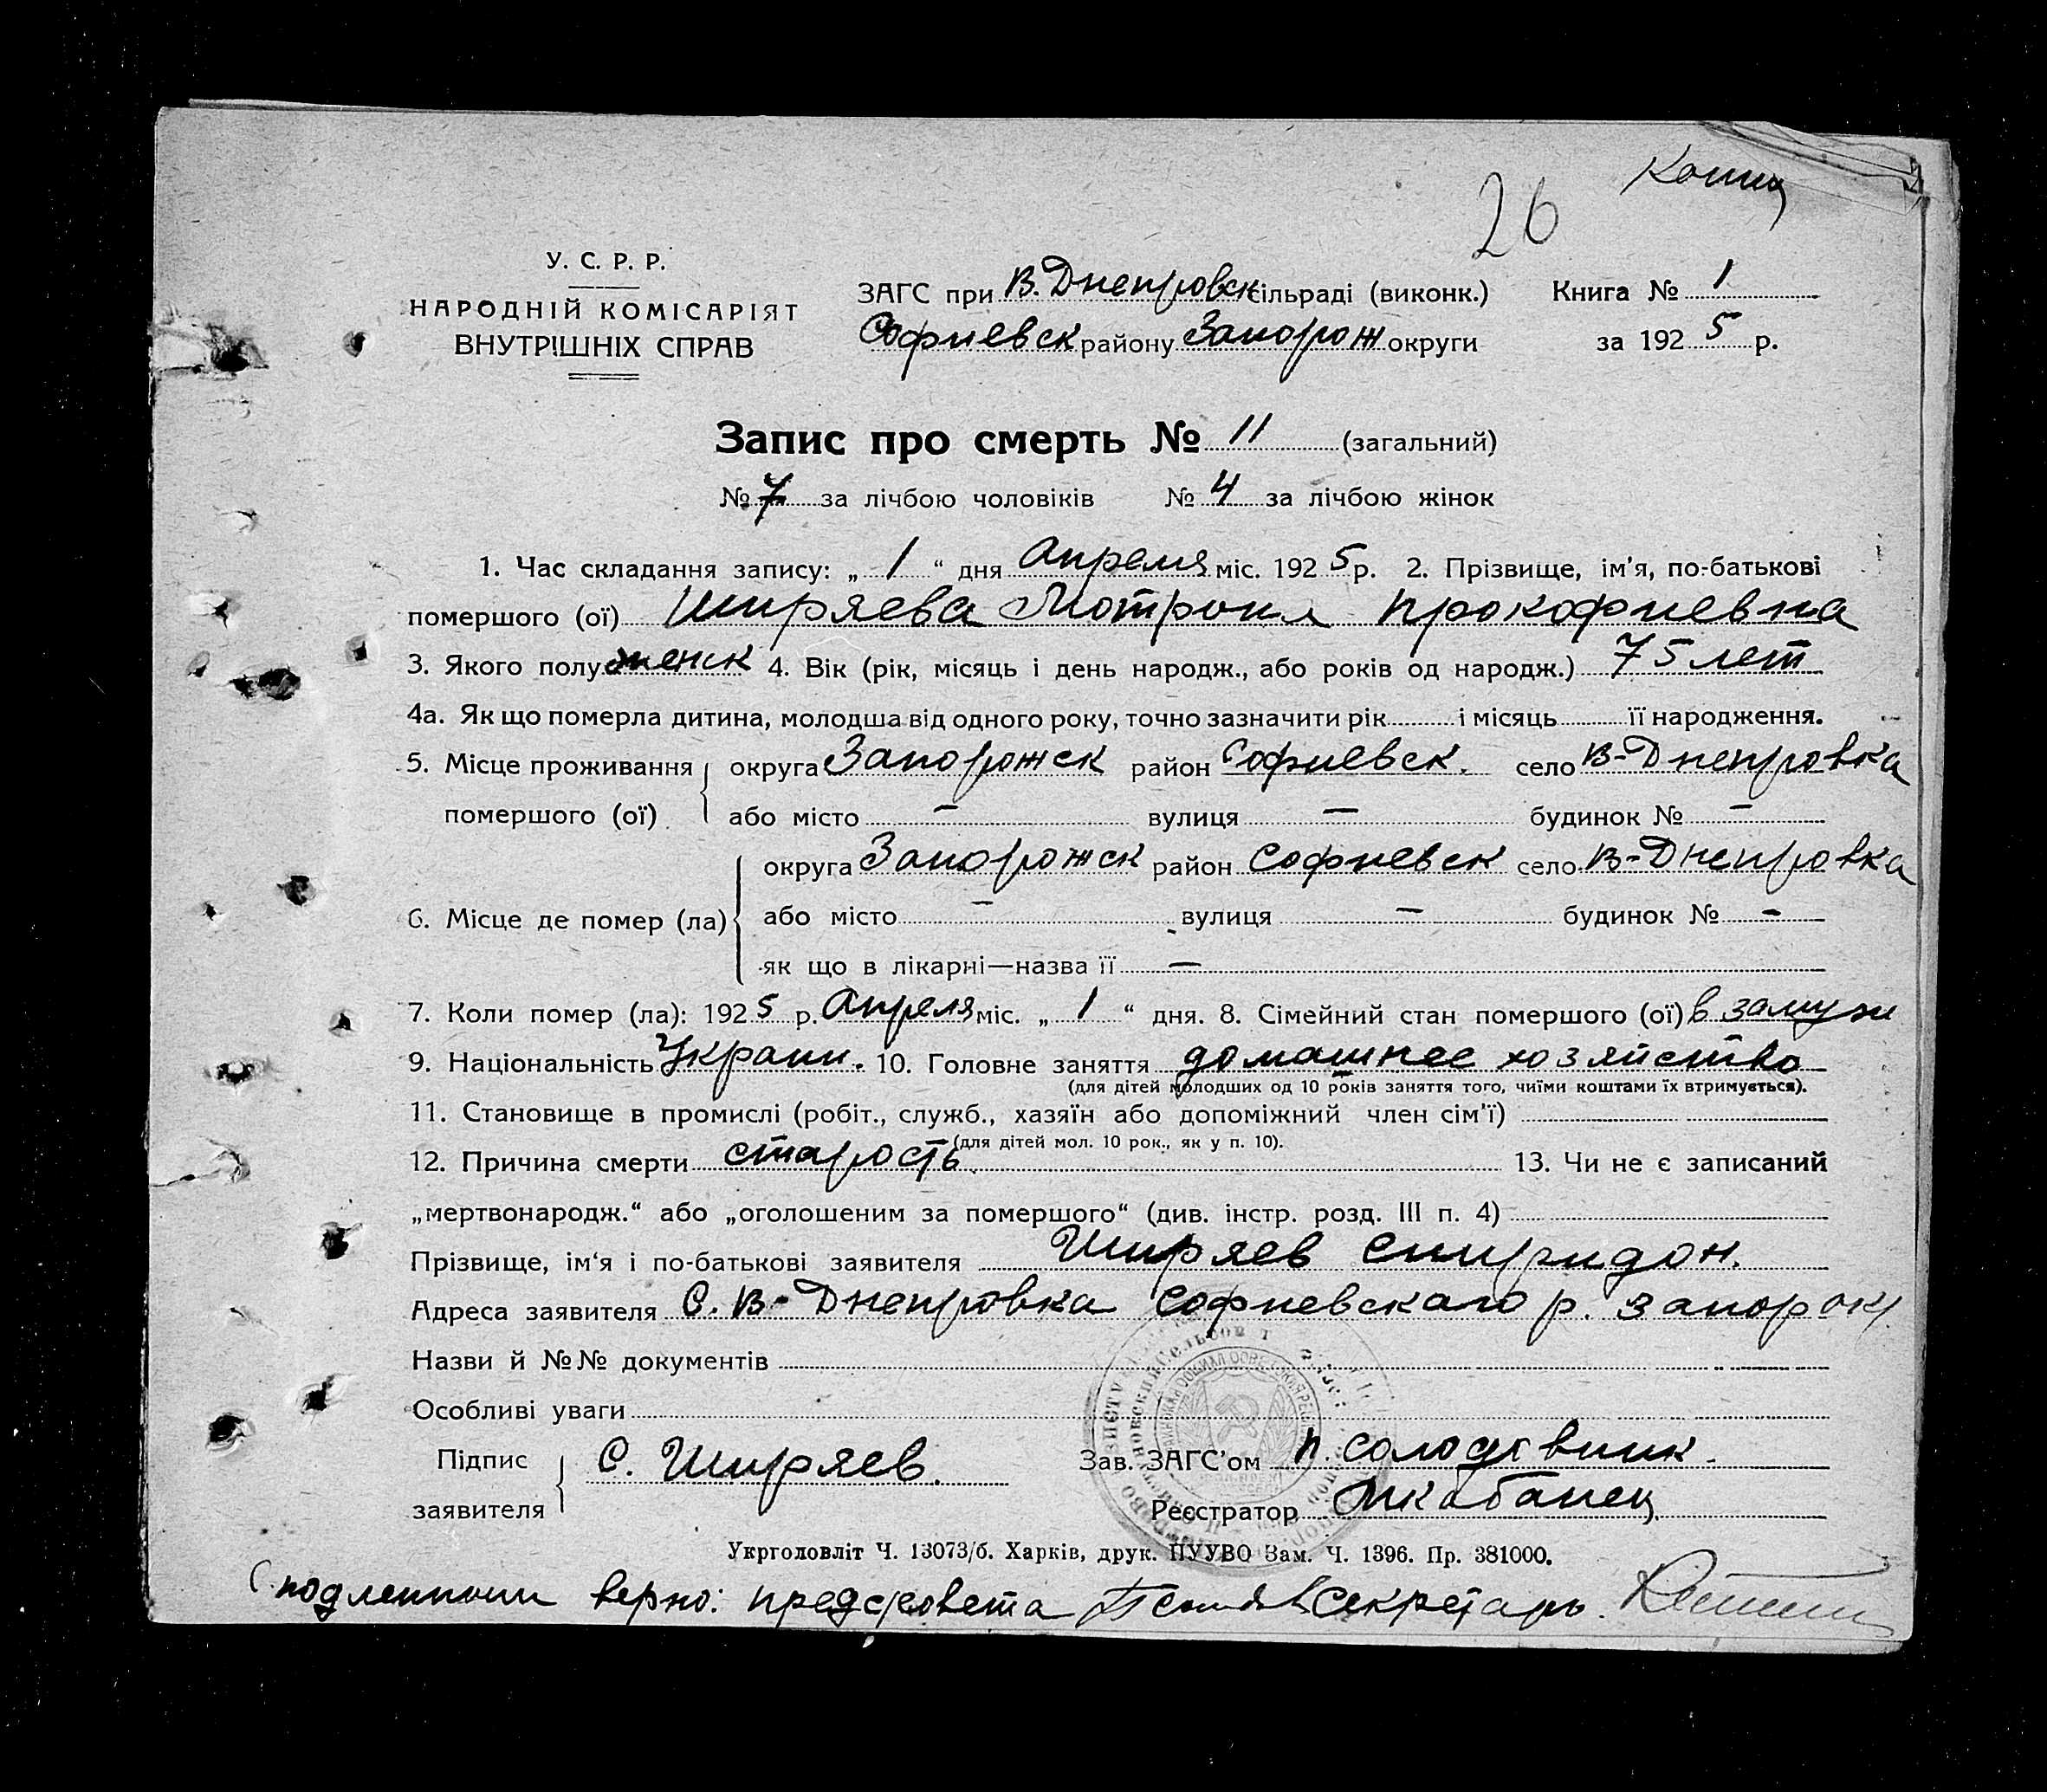 Копия
26
У. С. Р. Р.
НАРОДНІЙ КОМІСАРІЯТ
ВНУТРІШНІХ СПРАВ
ЗАГС при В. Днепровск сільраді (виконк.) Книга № 1
Софиевск району Запорож округи за 1925 р.
Запис про смерть № 11 (загальний)
№ 7 за лічбою чоловіків № 4 за лічбою жінок
1. Час складання запису: „ 1 “ дня Апреля міс. 1925 р. 2. Прізвище, ім’я, по-батькові
помершого (ої) Ширяева Мотрона Прокофиевна
3. Якого полу женск 4. Вік (рік, місяць і день народж., або років од народж.) 75 лет
4а. Як що померла дитина, молодша від одного року, точно зазначити рік і місяць її народження.
5. Місце проживання округа Запорожск район Софиевск. село В-Днепровка
помершого (ої) або місто — вулиця — будинок № —
округа Запорожск район Софиевск село В-Днепровка
6. Місце де помер (ла) або місто — вулиця — будинок № -
як що в лікарні—назва її —
7. Коли помер (ла): 1925 р. Апреля міс. „ 1 “ дня. 8. Сімейний стан помершого (ої) в замуж
9. Національність Украин. 10. Головне заняття домашнее хозяйство
(для дітей молодших од 10 років заняття того, чиїми коштами їх втримується).
11. Становище в промислі (робіт., служб., хазяїн або допоміжний член сім’ї)
(для дітей мол. 10 рок., як у п. 10).
12. Причина смерти старость. 13. Чи не є записаний
„мертвонародж.“ або „оголошеним за помершого“ (див. інстр. розд. III п. 4)
Прізвище, ім‘я і по-батькові заявителя Ширяев Спиридон.
Адреса заявителя С. В-Днепровка Софиевскаго р. Запор окр.
Назви й №№ документів
Особливі уваги
Підпис заявителя С. Ширяев. Зав. ЗАГС’ом П. Солодовник.
Реєстратор Кабанец
Укрголовліт Ч. 13073/б. Харків, друк. ПУУВО Зам. Ч. 1396. Пр. 381000.
С подленным верно: предсовета Секретарь.